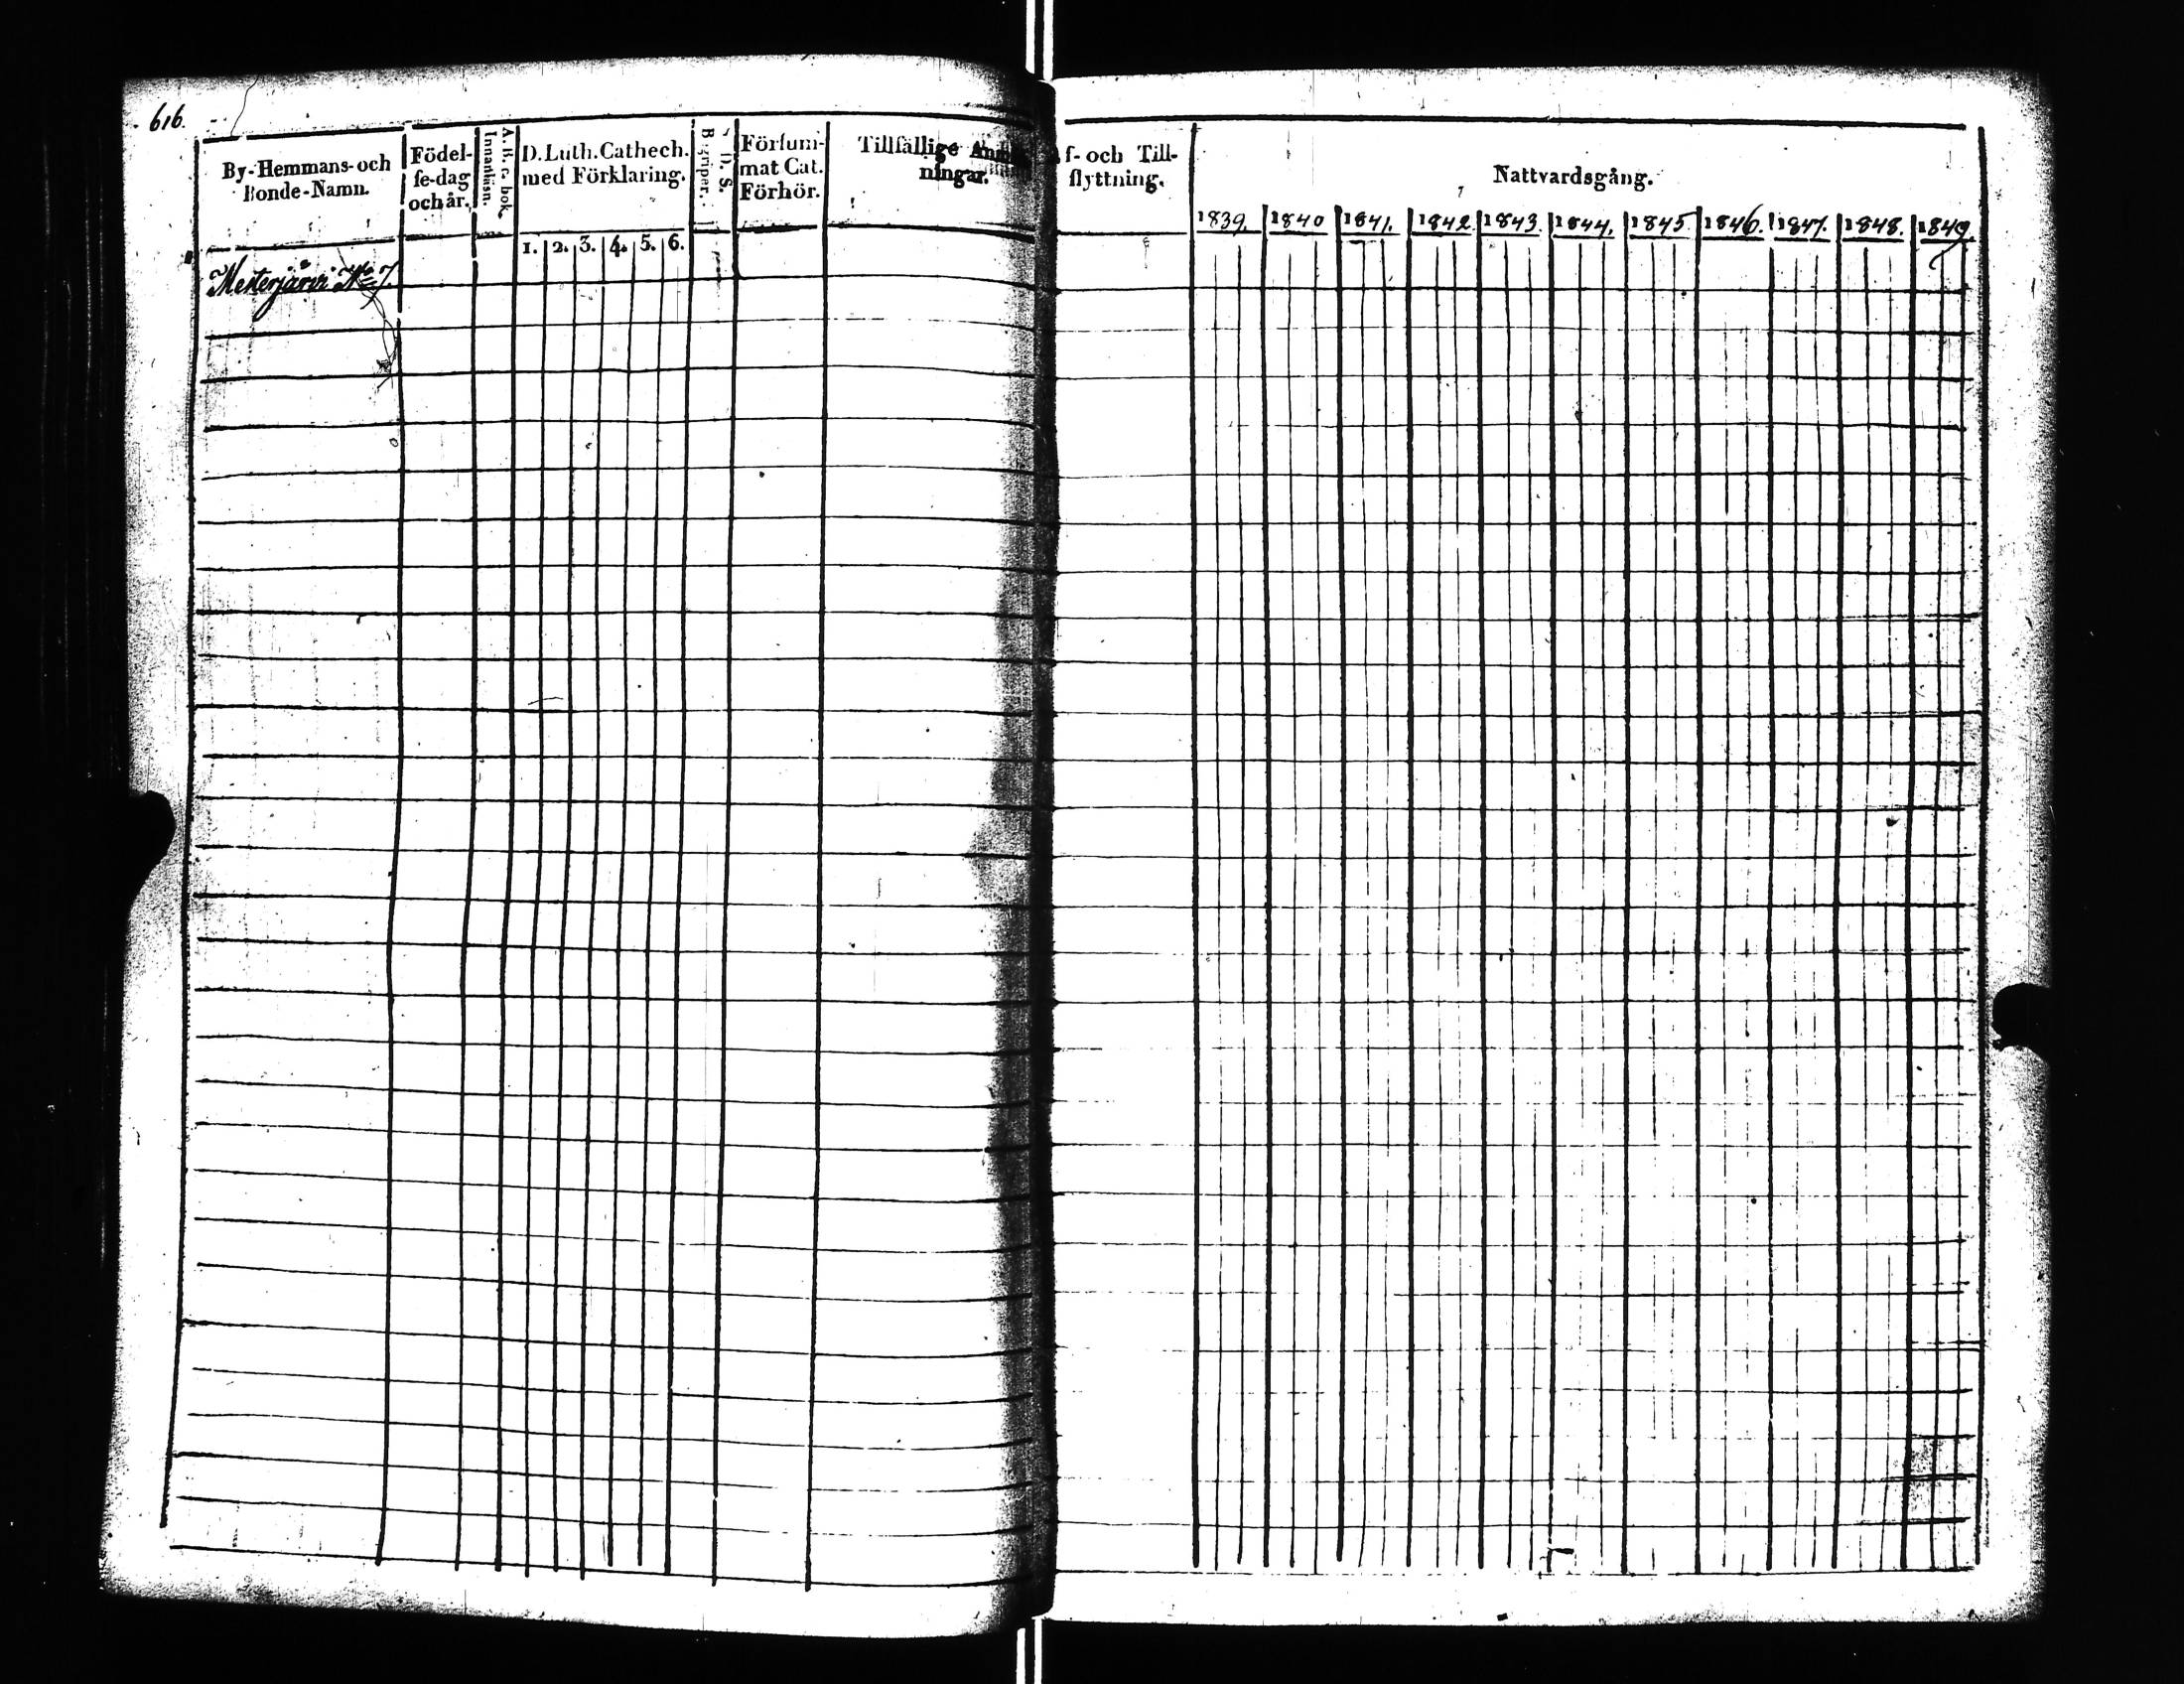 616.
By-Hemmans-och
Bonde-Namn.
Födel-
se-dag
och år.
A. B. c. bok.
Innanläsn.
D. Luth. Cathech.
med Förklaring.
1. 2. 3. 4. 5. 6.
D. S.
Begriper.
Försum-
mat Cat.
Förhör.
Tillfällige
ningar.
f- och Till-
flyttning.
Nattvardsgång.
1839. 1840 1841. 1842. 1843. 1844. 1845. 1846. 1847. 1848. 1849.